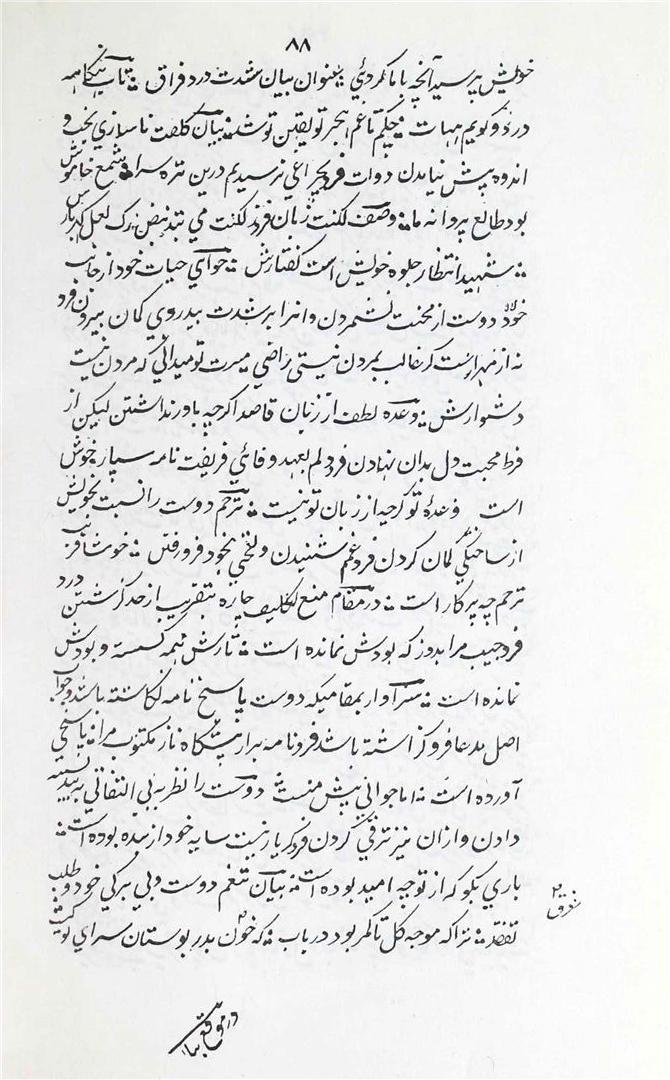 ٨٨
خویش پرسید آنچه با ما کردئی بعنوان بیان شدت درد فراق
درد و گویم هیهات چکنم تا غم هجر تو یقین تو شود بیان کلفت ناسازی بخت و
اندوه پیش نیامدن دوات فرد چراغی نرسیدیم درین تیره سرا شمع خاموش
بود طالع پروانه ما وصف لکنت زبان فرد لکنت می تپد نبض رگ لعل گهربارش
شهید انتظار جلوه خویش است گفتارش جوای حیات خود از جانب
خود دوست از محنت نشمردن و انرا بر شدت بیدردی گمان بردن فرد
نه از مهر است کز غالب بمردن نیستی راضی سرت تو میدانی که مردن نیست
دشوارش وعده لطف از زبان قاصد اگرچه باور نداشتن لیکن از
فرط محبت دل بدان نهادن فرد لم بعهد وفائی فریفت نامه سپار خوش
است وعدهٔ تو گرچه از زبان تو نیست ترحم دوست را نسبت بخویش
از ساختگی گمان کردن فرد غمم شنیدن و لختی بخود فرو رفتن خوشا فریب
ترحم چه پرکار است در مقام منع تکلیف چاره بتقریب از حد گذشتن درد
فرد جیب مرا مدوز که بودش نمانده است تارش ز هم گسسته و بودش
نمانده است سزاوار بمقامیکه دوست پاسخ نامه نگاشته باشد و جواب
اصل مدعا فرو گذاشته باشد فرد نامه بر از پیشگاه ناز مکتوب مرا پاسخی
آورده است اما جوابی بیش نیست دوست را نظر به بی التفاتی
دادن و ازان نیز ترقی کردن فرد گریار نیست سایه خود از بیده بوده است
باری بگو که از تو چه امید بوده است بیان تنعم دوست و بی برگی خود و طلب
تفقد تراکه موجه گل تا کمر بود دریاب که خون بدر بوستان سرای تو کیست
در موقع بیان